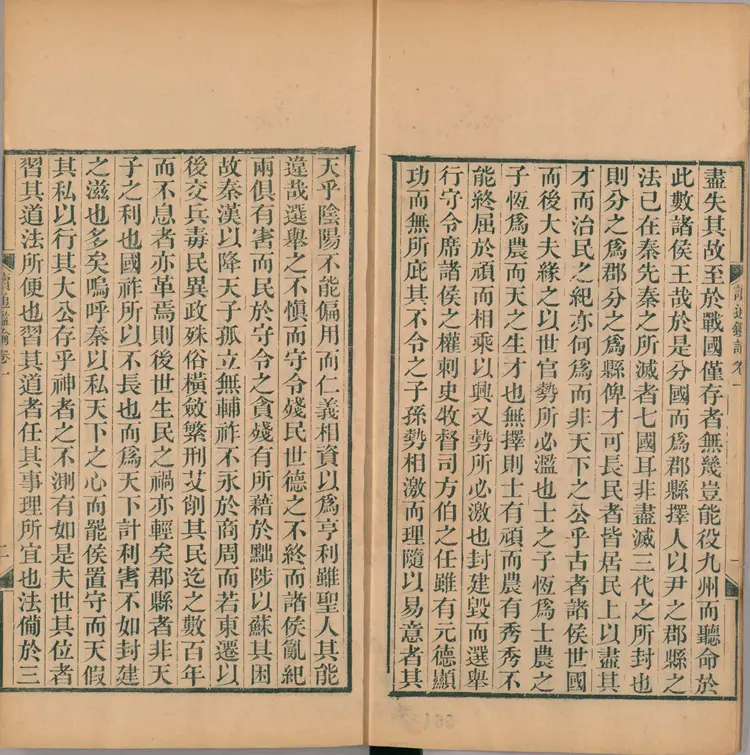 盡失其故至於戰國僅存者無幾豈能役九州而聽命於
此數諸侯王哉於是分國而爲郡縣擇人以尹之郡縣之
法已在秦先秦之所滅者七國耳非盡滅三代之所封也
則分之爲郡分之爲縣俾才可長民者皆居民上以盡其
才而治民之紀亦何爲而非天下之公乎古者諸侯世國
而後大夫緣之以世官勢所必濫也士之子恆爲士農之
子恆爲農而天之生才也無擇則士有頑而農有秀秀不
能終屈於頑而相乘以興又勢所必激也封建毀而選舉
行守令席諸侯之權刺史牧督司方伯之任雖有元德顯
功而無所庇其不令之子孫勢相激而理隨以易意者其
讀通鑑論 卷一
一
天乎陰陽不能偏用而仁義相資以爲亨利雖聖人其能
違哉選舉之不慎而守令殘民世德之不終而諸侯亂紀
兩俱有害而民於守令之貪殘有所藉於黜陟以蘇其困
故秦漢以降天子孤立無輔祚不永於商周而若東遷以
後交兵毒民異政殊俗橫斂繁刑艾削其民迄之數百年
而不息者亦革焉則後世生民之禍亦輕矣郡縣者非天
子之利也國祚所以不長也而爲天下計利害不如封建
之滋也多矣嗚呼秦以私天下之心而罷侯置守而天假
其私以行其大公存乎神者之不測有如是夫世其位者
習其道法所便也習其道者任其事理所宜也法備於三
讀通鑑論 卷一
二